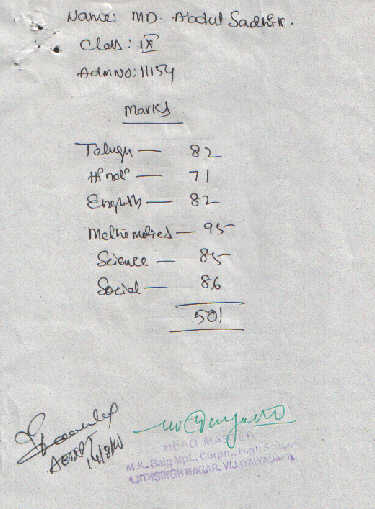 Name: MD. Abdul Sadhik.
Class: IX
Adm No: 11154
Marks
Telugu — 82
Hindi — 71
English — 82
Mathematics — 95
Science — 85
Social — 86
501
HEAD MASTER
M.K. Baig Mpl. Corpn. High School
AJITHSINGH NAGAR, VIJAYAWADA